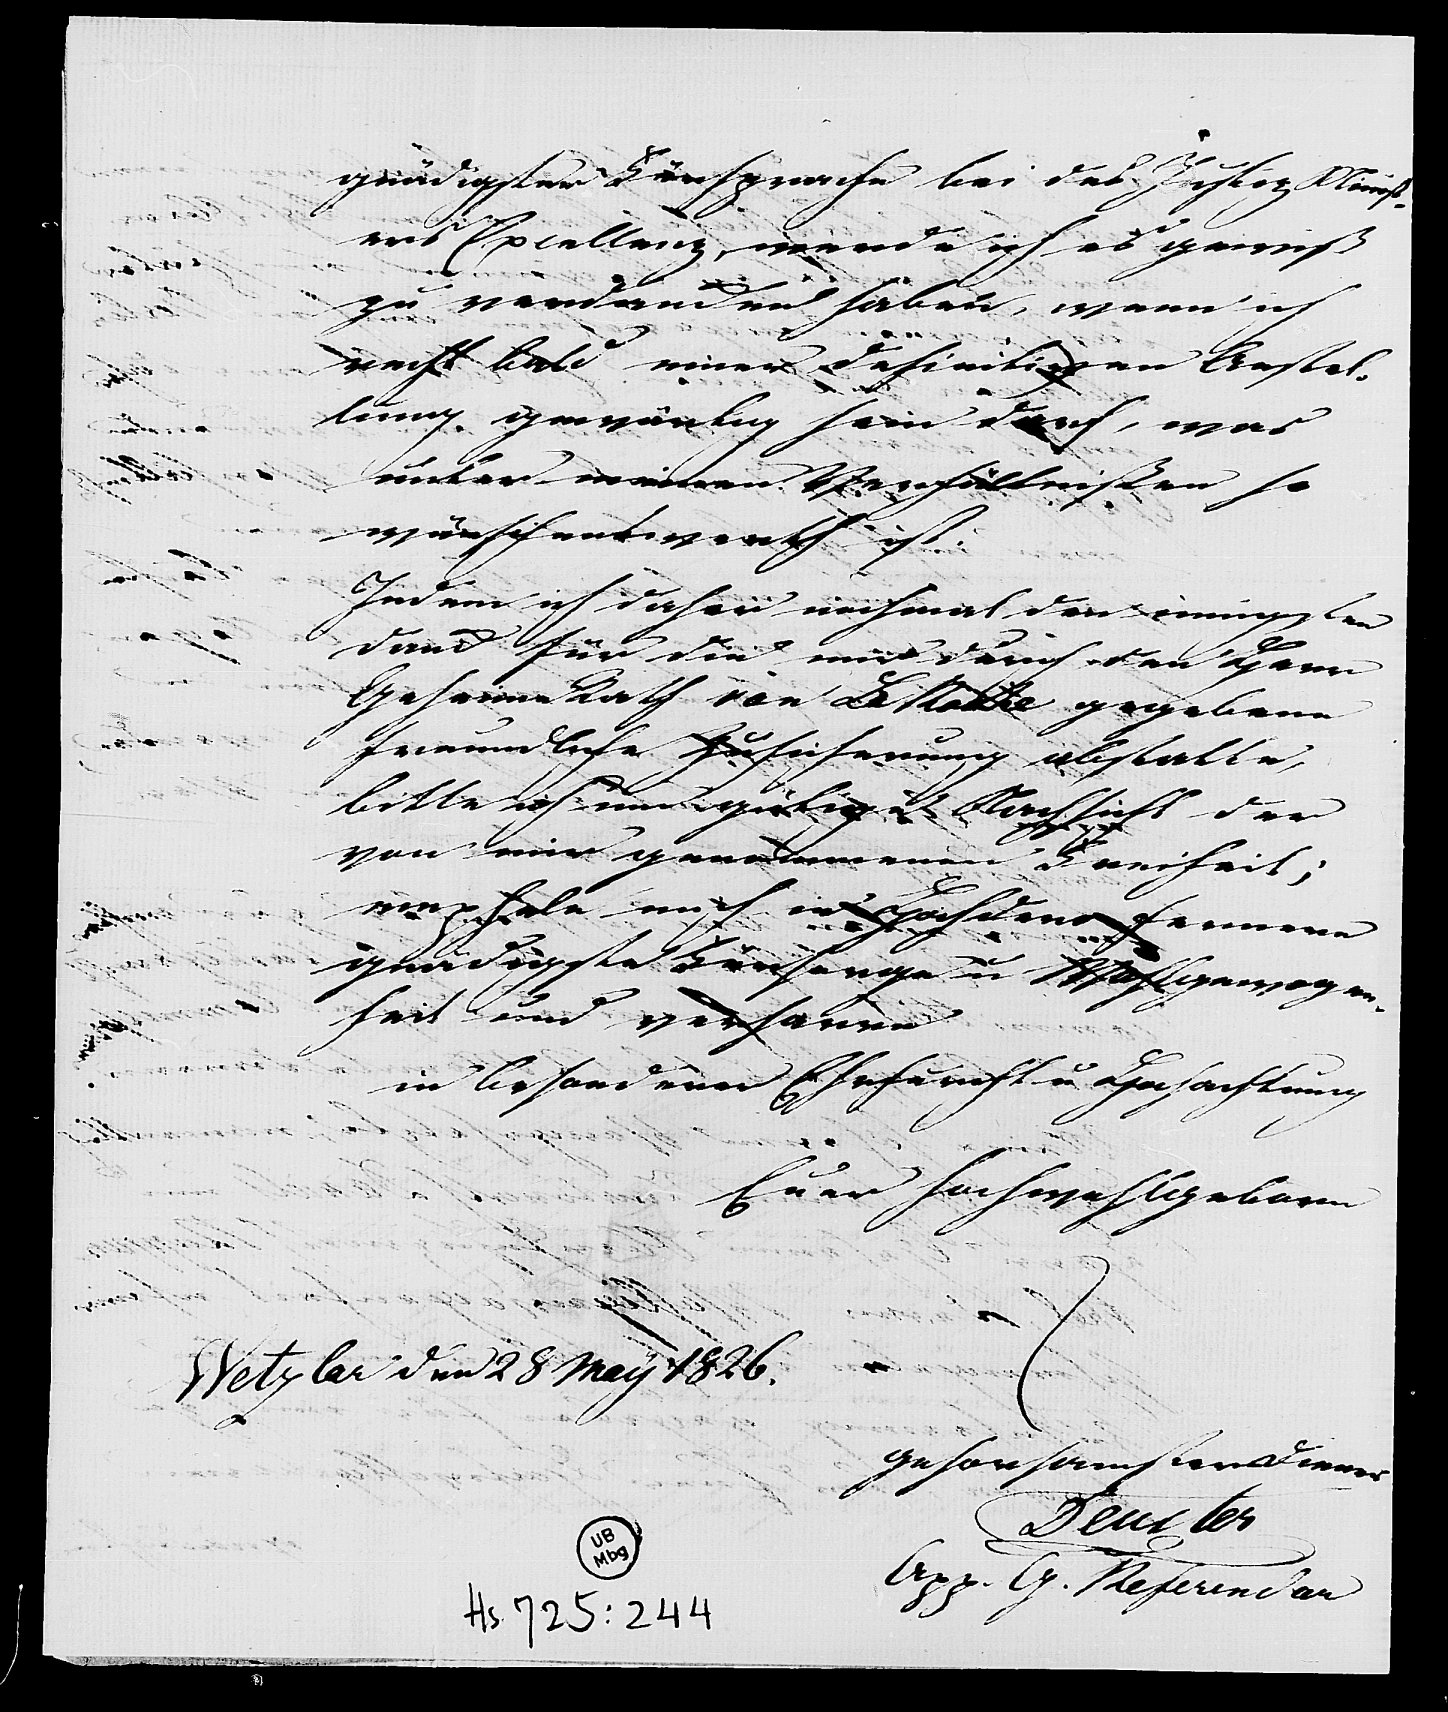 gnädigster Fürsprache bei des Justiz Minist-
ers Excellenz, werde ich es gewiß
zu verdanken haben, wenn ich
recht bald einer definitiven Anstel-
lung gewärtig sein darf, was
unter meinen Verhältnißen so
wünschenswerth ist.
Indem ich daher nochmal den innigsten
Dank für die mir durch den Herrn
Geheime Rath von gegebene
freundliche Zusicherung abstatte,
bitte ich um gütige Nachsicht der
von mir genommenen Freiheit;
empfehle mich in Hochdero fernere
gnädigste Fürsorge u Wohlgewogen-
heit und verharre
in besonderer Ehrfurcht u Hochachtung
Euer Hochwohlgeboren
Wetzlar den 28 May 1826.
gehorsamster Diener
App. G. Referendar
UB
Mbg
Hs. 725:244